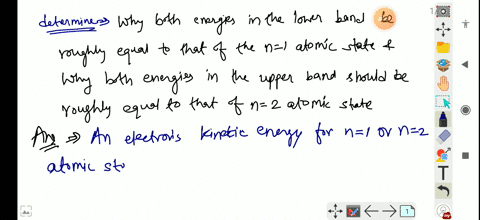 determine ⇒ Why both energies in the lower band be
roughly equal to that of the n=1 atomic state &
Why both energies in the upper band should be
roughly equal to that of n=2 atomic state
Ans ⇒ An electrons kinetic energy for n=1 or n=2
atomic st